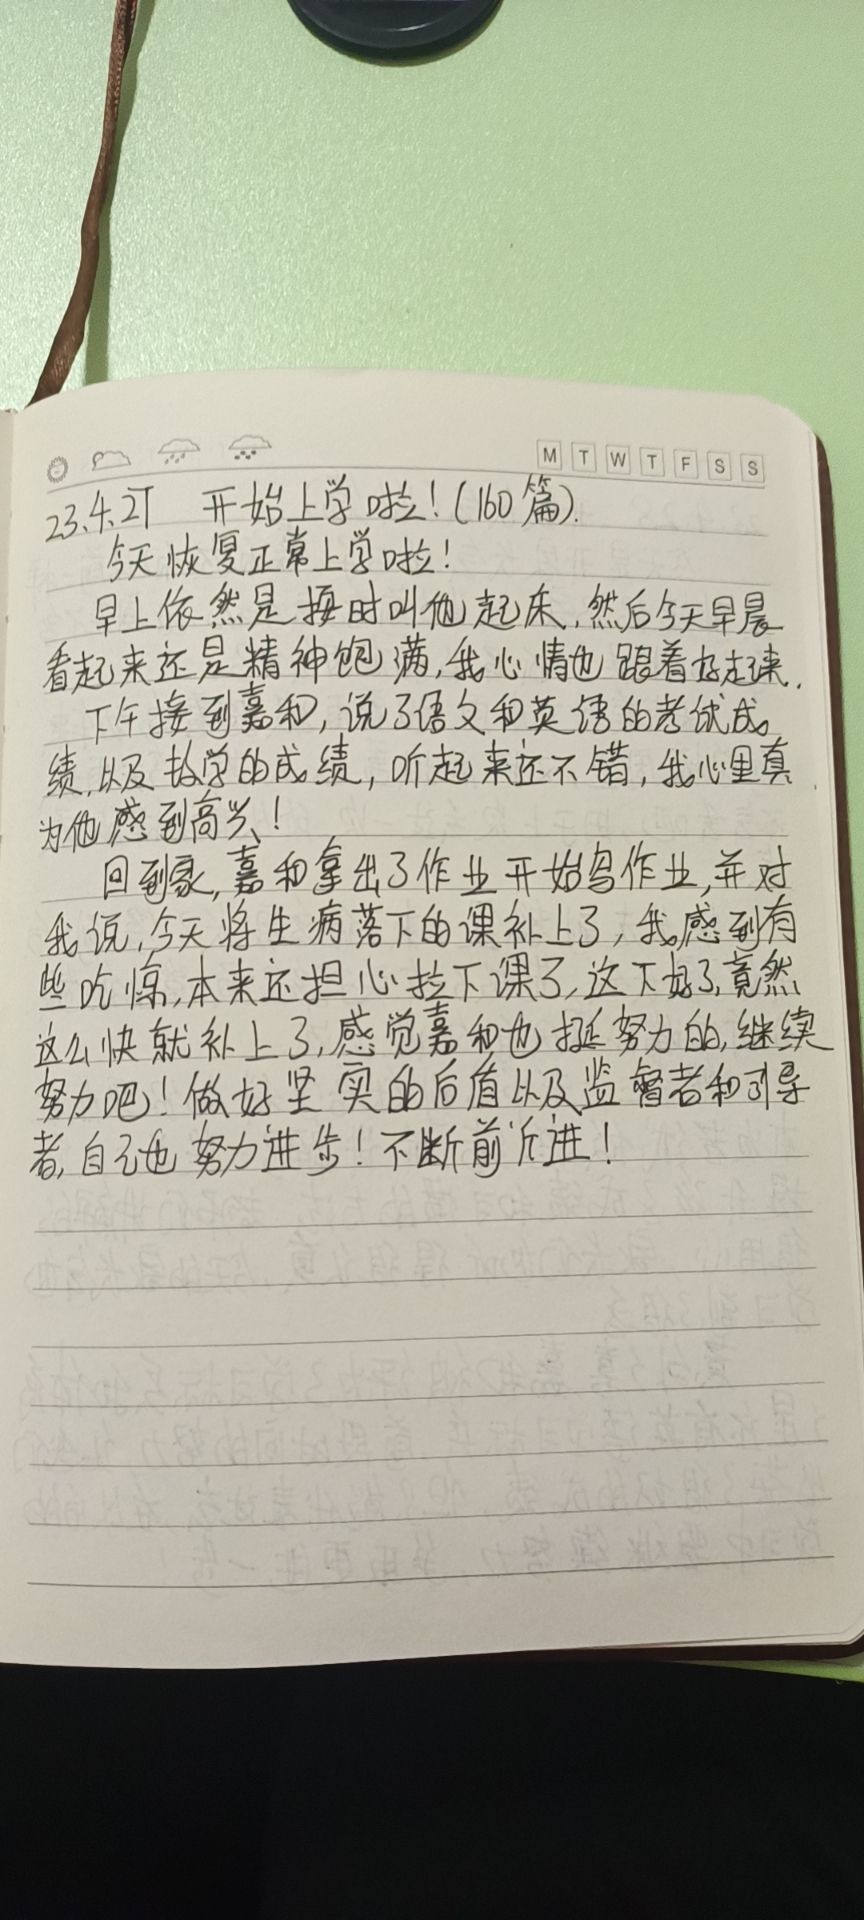 M T W T F S S
23.4.27 开始上学啦！(160篇).
今天恢复正常上学啦！
早上依然是按时叫他起床，然后今天早晨
看起来还是精神饱满，我心情也跟着好起来．
下午接到嘉和，说了语文和英语的考试成
绩，以及数学的成绩，听起来还不错，我心里真
为他感到高兴！
回到家，嘉和拿出了作业开始写作业，并对
我说，今天将生病落下的课补上了，我感到有
些吃惊，本来还担心拉下课了，这下好了，竟然
这么快就补上了，感觉嘉和也挺努力的，继续
努力吧！做好坚实的后盾以及监督者和引导
者，自己也努力进步！不断前行进！